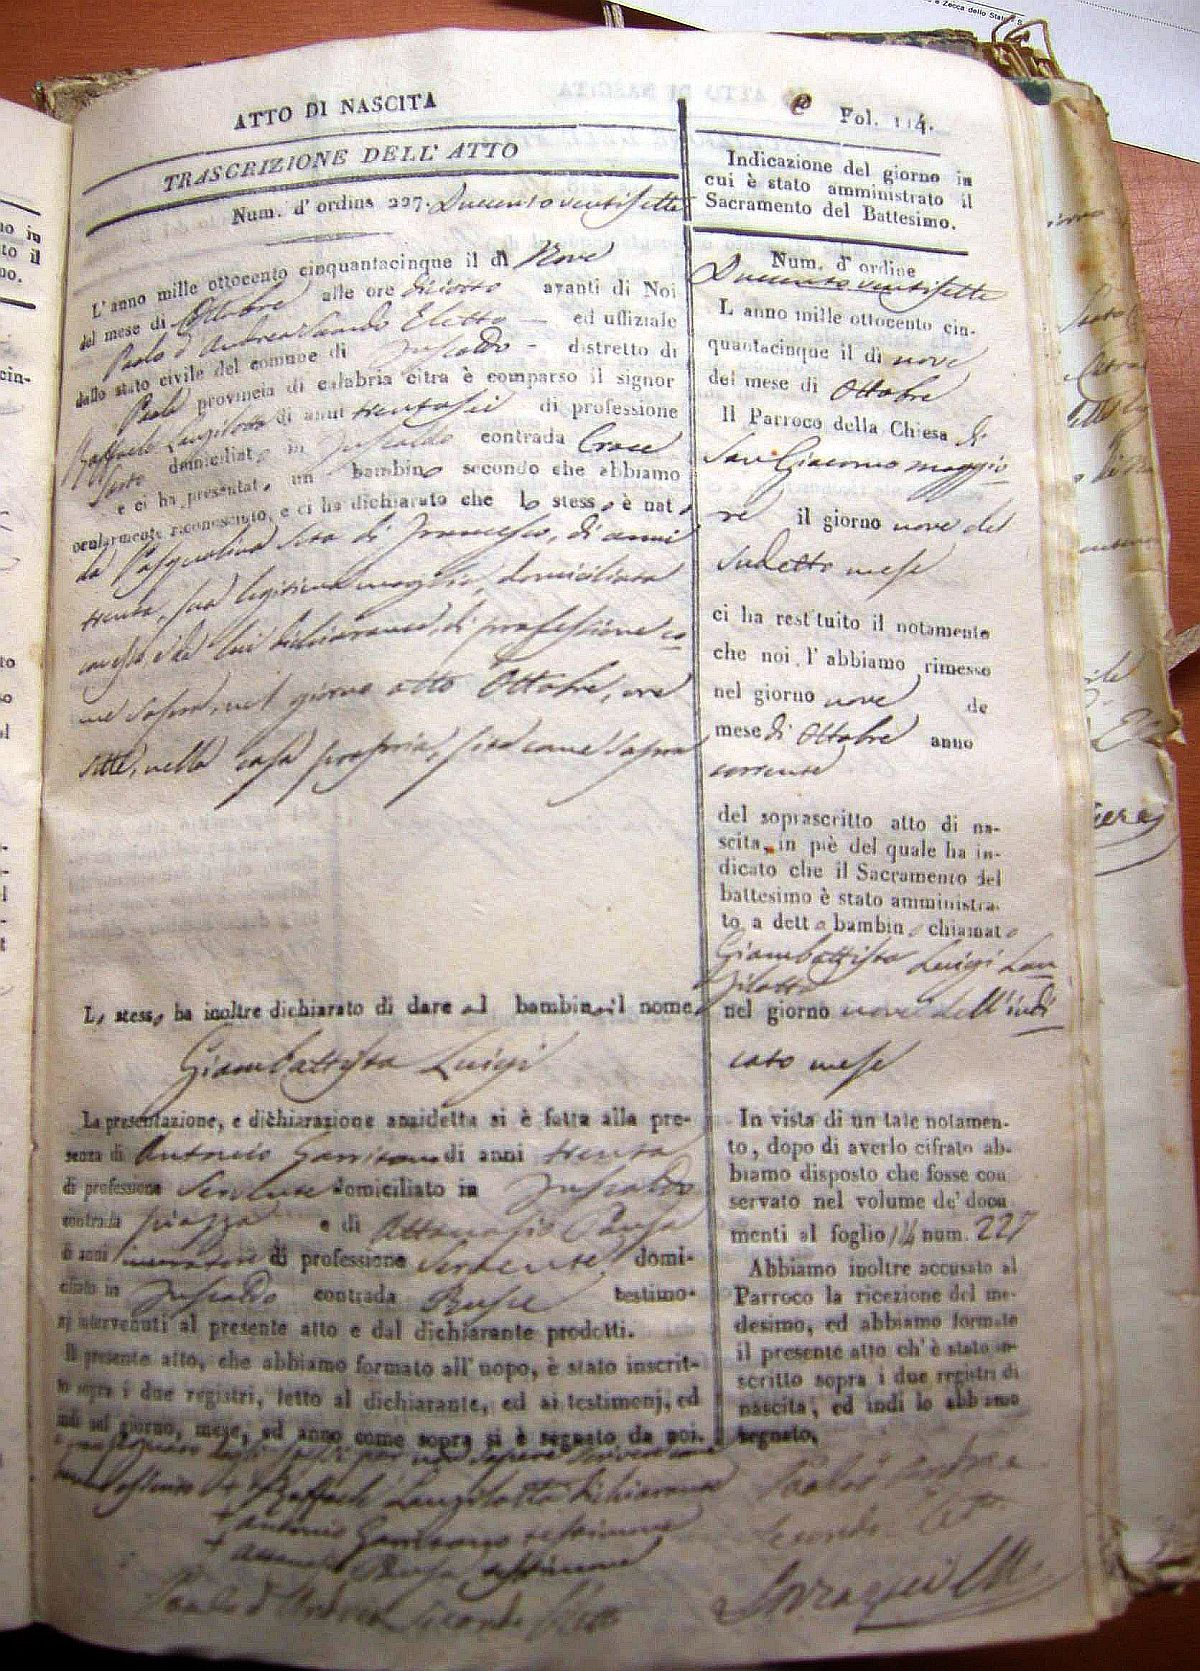 e Zecca dello Stato
ATTO DI NASCITA
TRASCRIZIONE DELL' ATTO
Num. d' ordine 227. Duecento ventisette
L'anno mille ottocento cinquantacinque il dì Nove
del mese di Ottobre alle ore diciotto avanti di Noi
Paolo d'Andrea Secondo Eletto ed uffiziale
dello stato civile del comune di Fuscaldo distretto di
Paola provincia di calabria citra è comparso il signor
Raffaele Lanzilotta di anni trentasei di professione
Sarto domiciliato in Fuscaldo contrada Croce
e ci ha presentato un bambino secondo che abbiamo
ocularmente riconosciuto, e ci ha dichiarato che lo stesso è nato
da Pasqualina di Francesco, di anni
trenta, sua legitima moglie, domiciliata
con esso lui dichiarante, di professione co
me sopra, nel giorno otto Ottobre, ore
sette, nella casa propria, sita come sopra
Lo stesso ha inoltre dichiarato di dare al bambino il nome
Giambattista Luigi
La presentazione, e dichiarazione anzidetta si è fatta alla pre-
senza di Antonio di anni trenta
di professione Servente domiciliato in Fuscaldo
contrada piazza e di
di anni di professione Servente domi-
ciliato in Fuscaldo contrada testimo-
nj intervenuti al presente atto e dal dichiarante prodotti.
Il presente atto, che abbiamo formato all'uopo, è stato inscrit-
to sopra i due registri, letto al dichiarante, ed ai testimonj, ed
indi nel giorno, mese, ed anno come sopra si è segnato da noi.
per non sapere scrivere
Raffaele Lanzilotta dichiarante
Antonio testimone
testimone
Paolo d'Andrea Secondo Eletto
Fol. 114.
Indicazione del giorno in
cui è stato amministrato il
Sacramento del Battesimo.
Num. d' ordine
Duecento ventisette
L anno mille ottocento cin-
quantacinque il dì nove
del mese di Ottobre
Il Parroco della Chiesa di
San Giacomo maggio
re il giorno nove del
sudetto mese
ci ha rest'tuito il notamento
che noi l' abbiamo rimesso
nel giorno nove de
mese di Ottobre anno
corrente
del soprascritto atto di na-
scita, in piè del quale ha in-
dicato che il Sacramento del
battesimo è stato amministra-
to a detto bambino chiamato
Giambattista Luigi Lan
zilotta
nel giorno nove dell'indi
cato mese
In vista di un tale notamen-
to, dopo di averlo cifrato ab-
biamo disposto che fosse con
servato nel volume de' docu
menti al foglio 114 num. 227
Abbiamo inoltre accusato al
Parroco la ricezione del me-
desimo, ed abbiamo formato
il presente atto ch' è stato in-
scritto sopra i due registri di
nascita, ed indi lo abbiamo
segnato.
Paolo d'Andrea
Secondo Eletto